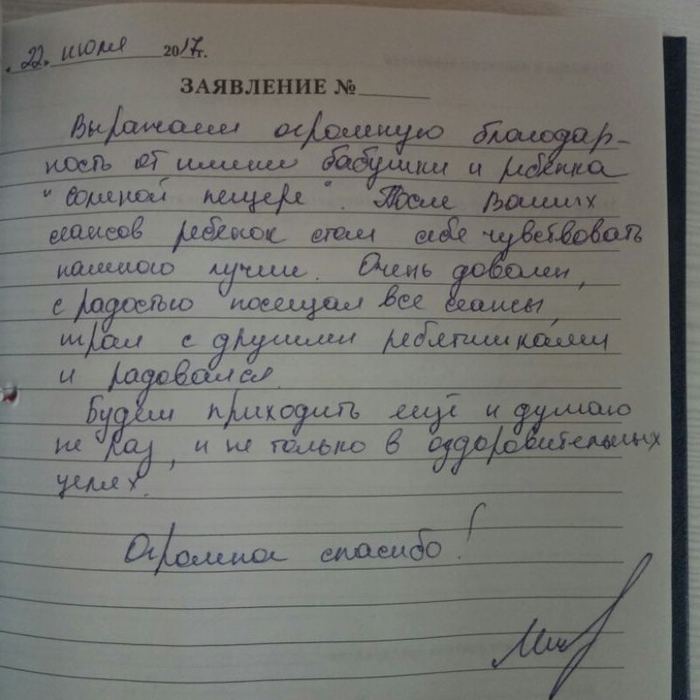 22. июля 2017г.
ЗАЯВЛЕНИЕ №
Выражаем огромную благодар-
ность от имени бабушки и ребёнка
"соленой пещере". После Ваших
сеансов ребёнок стал себе чувствовать
намного лучше. Очень доволен,
с радостью посещал все сеансы,
играл с другими ребятишками
и радовался.
Будем приходить ещё и думаю
не раз, и не только в оздоровительных
целях.
Огромное спасибо!